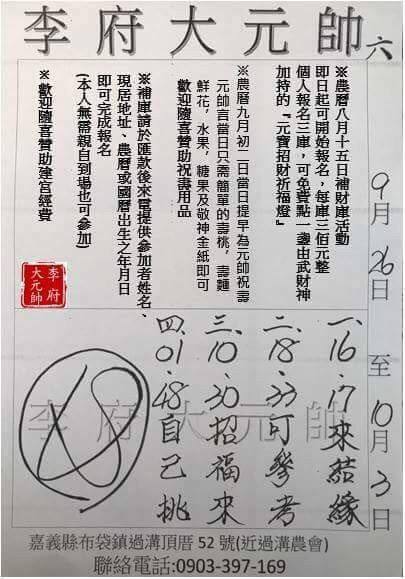 李府大元帥
六
9月26日至10月3日
※農曆八月十五日補財庫活動
即日起可開始報名,每庫三佰元整
個人報名三庫,可免費點一盞由武財神
加持的『元寶招財祈福燈』
※農曆九月初二日當日提早為元帥祝壽
元帥言當日只需簡單的壽桃,壽麵
鮮花,水果,糖果及敬神金紙即可
歡迎隨喜贊助祝壽用品
※補庫請於匯款後來電提供參加者姓名、
現居地址、農曆或國曆出生之年月日
即可完成報名
(本人無需親自到場也可參加)
※歡迎隨喜贊助建宮經費
李府
大元帥
一、16.17來結緣
二、18.33可參考
三、10.30招福來
四、01.48自己挑
李府大元帥
嘉義縣布袋鎮過溝頂厝52號(近過溝農會)
聯絡電話:0903-397-169